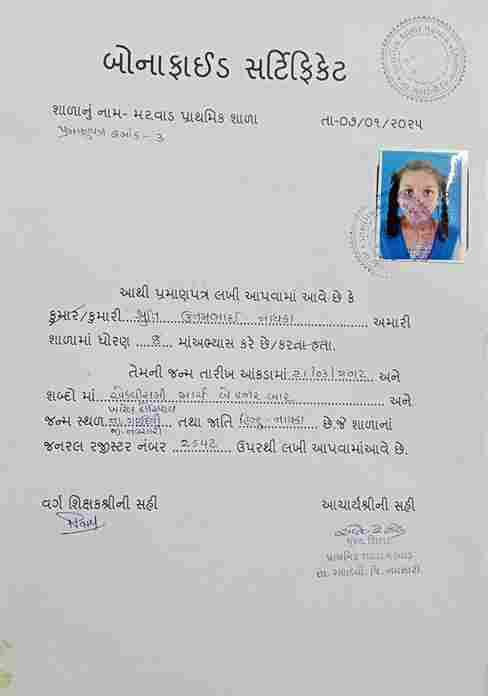 બોનાફાઈડ સર્ટિફિકેટ
શાળાનું નામ- મરવાડ પ્રાથમિક શાળા તા-૦૭/૦૧/૨૦૨૫
પ્રમાણપત્ર ક્રમાંક - ૩
આથી પ્રમાણપત્ર લખી આપવામાં આવે છે કે
કુમાર/કુમારી ઉત્તમભાઈ નાયકા અમારી
શાળામાં ધોરણ ૭ માંઅભ્યાસ કરે છે/કરતા હતા.
તેમની જન્મ તારીખ આંકડામાં ૨૧/૦૩/૨૦૧૨ અને
શબ્દો માં એકવીસમી માર્ચ બે હજાર બાર અને
જન્મ સ્થળ તા. ગણદેવી જી. નવસારી તથા જાતિ હિન્દુ - નાયકા છે.જે શાળાનાં
જનરલ રજીસ્ટર નંબર ઉપરથી લખી આપવામાંઆવે છે.
વર્ગ શિક્ષકશ્રીની સહી આચાર્યશ્રીની સહી
મુખ્ય શિક્ષક
પ્રાથમિક શાળા મરવાડ
તા. ગણદેવી, જિ. નવસારી